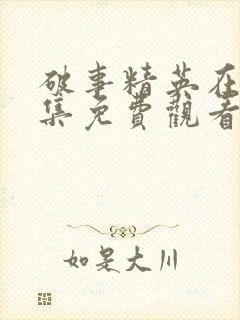 破事精英在
集免費觀看
如是大川